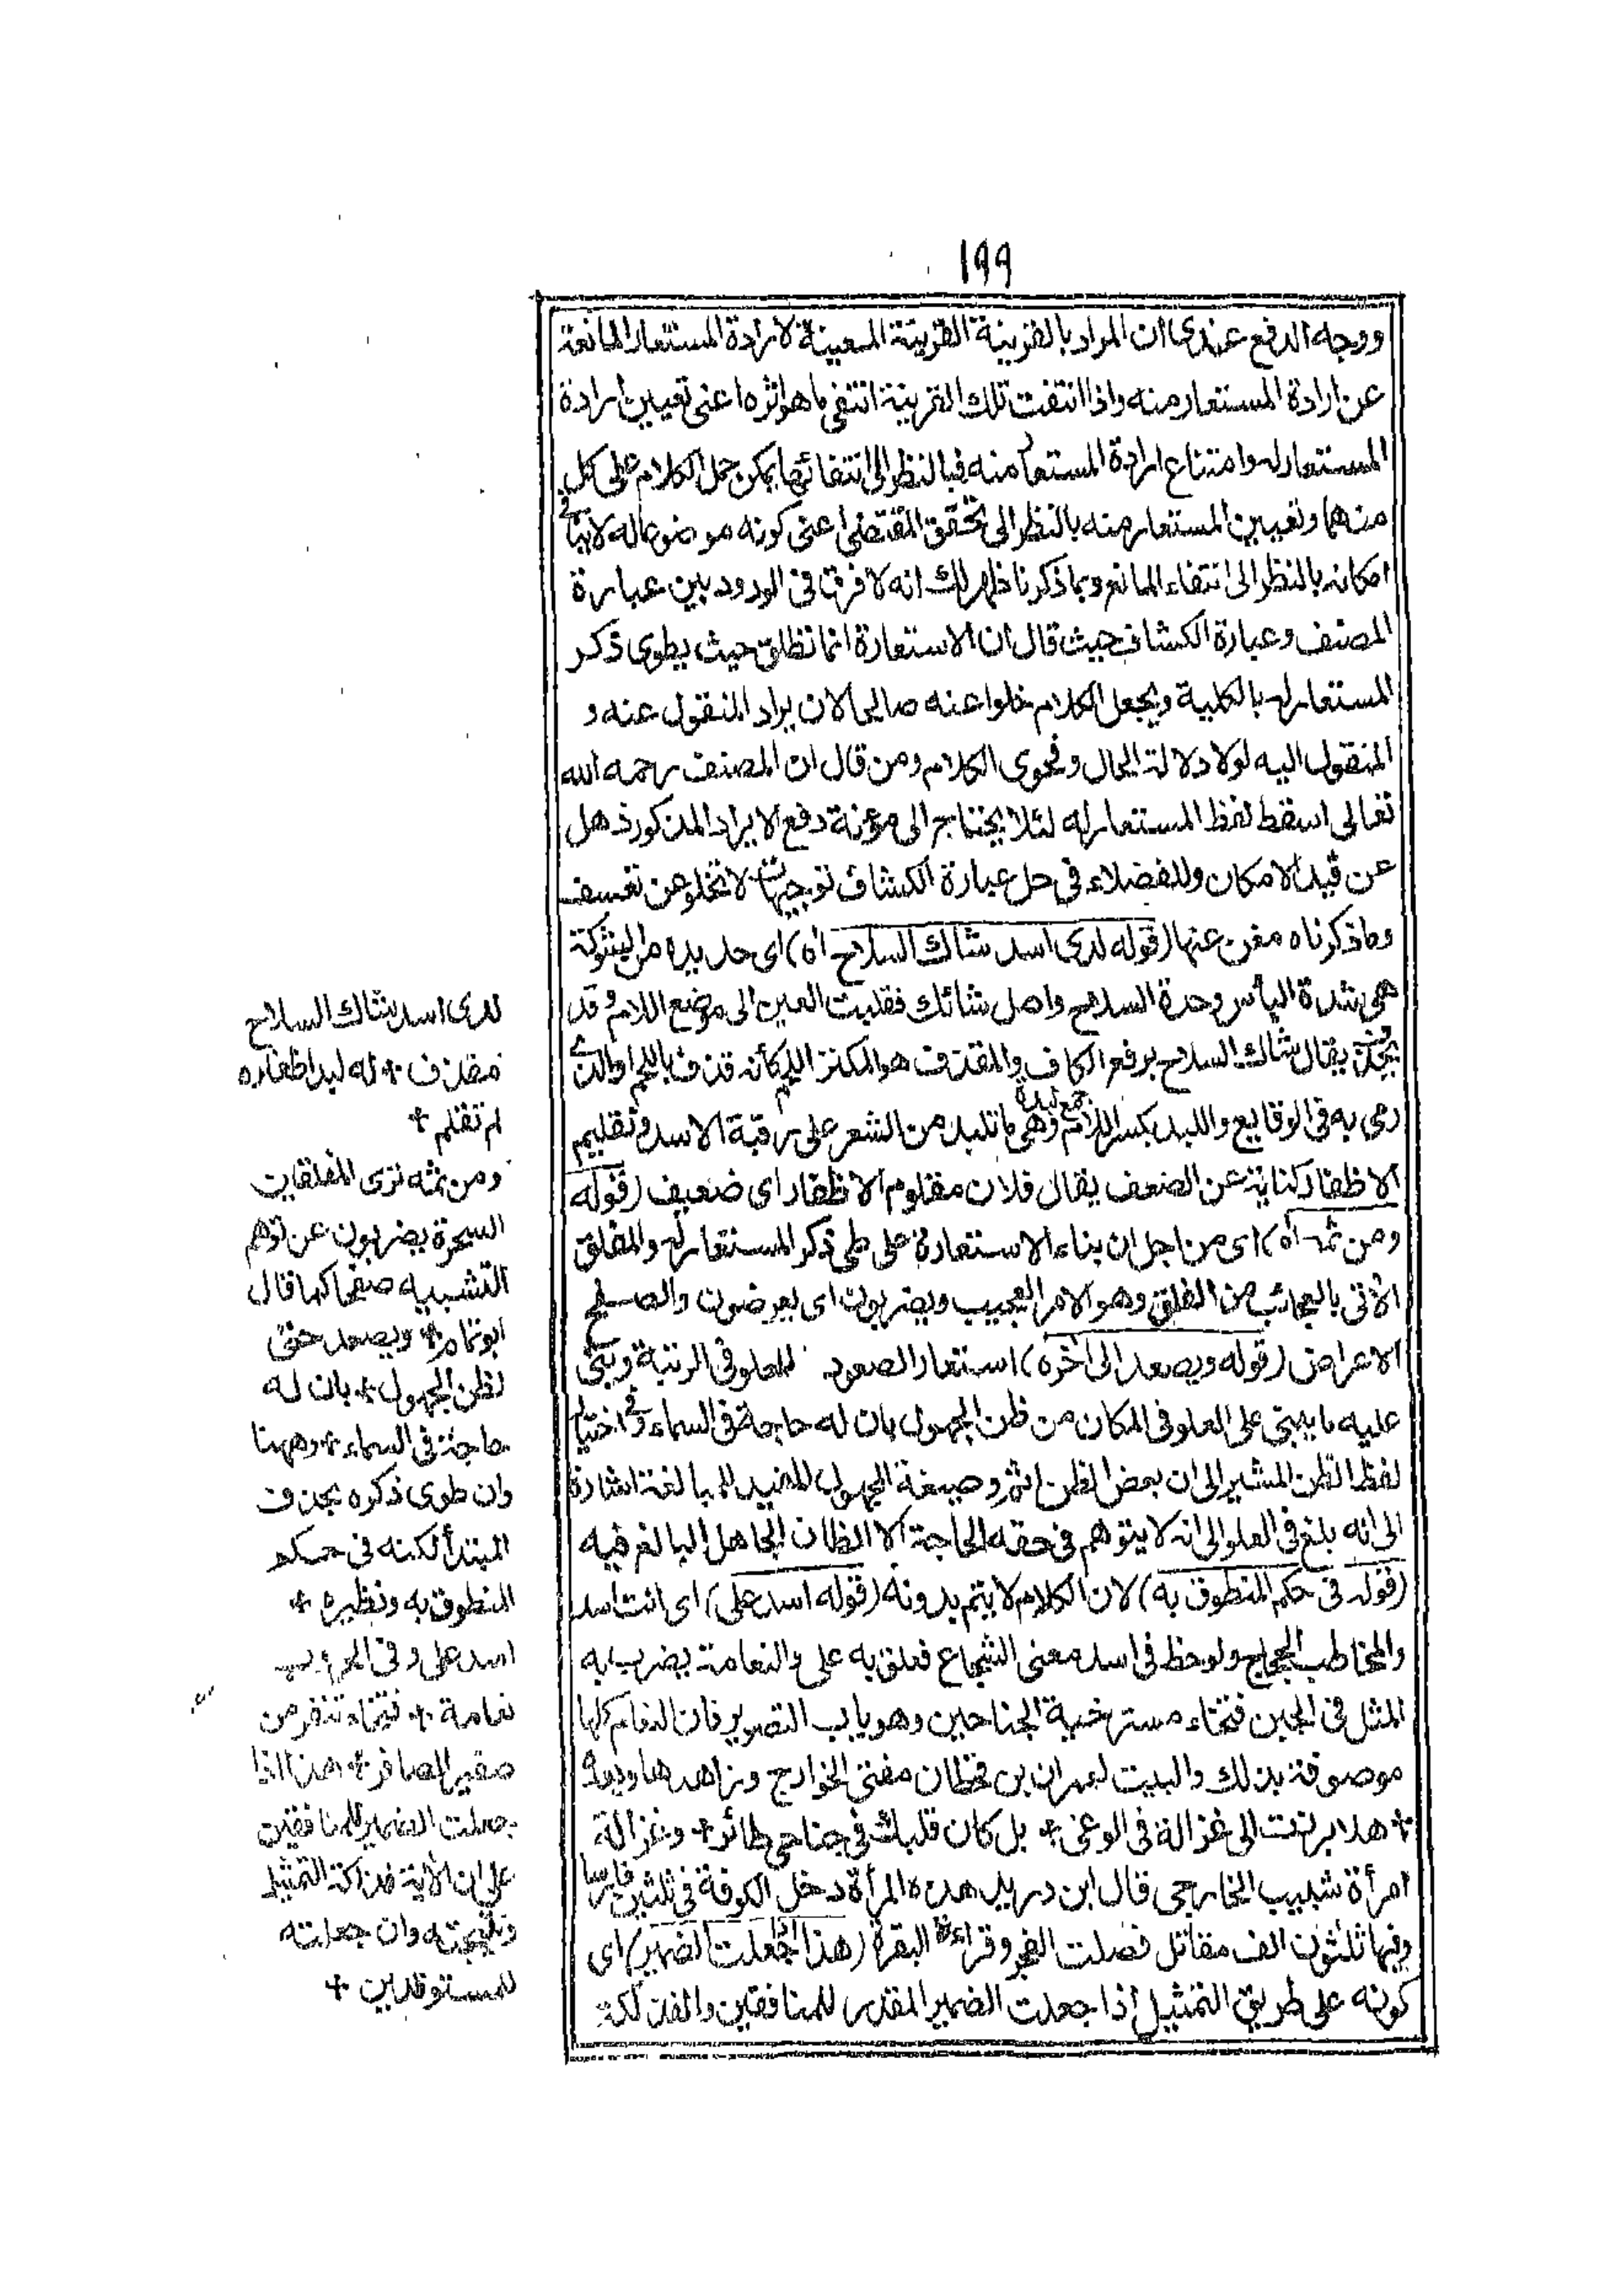 ١٩٩
ووجه الدفع عندى ان المراد بالقرينة القرينة المعينة لارادة المستعار المانعة
عن ارادة المستعار منه واذا انتفت تلك القرينة انتفى ما هو اثره اعنى تعيين ارادة
المستعار له وامتناع ارادة المستعار منه فبالنظر الى انتفائها يمكن حمل الكلام على كل
منهما وتعيين المستعار منه بالنظر الى تحقق المقتضى اعنى كونه موضوعا له لا ينافى
امكانه بالنظر الى انتفاء المانع وبما ذكرنا ظهر لك انه لا فرق فى الورود بين عبارة
المصنف وعبارة الكشاف حيث قال ان الاستعارة انما تطلق حيث يطوى ذكر
المستعار له بالكلية ويجعل الكلام خلوا عنه صالحا لان يراد المنقول عنه و
المنقول اليه لولا دلالة الحال وفحوى الكلام ومن قال ان المصنف رحمه الله
تعالى اسقط لفظ المستعار له لئلا يحتاج الى مؤنة دفع الايراد المذكور ذهل
عن قيد الامكان وللفضلاء فى حل عبارة الكشاف توجيهات لا تخلو عن تعسف
وما ذكرناه مغن عنها (قوله لدى اسد شاك السلاح اه) اى حديده من الشوكة
هى شدة البأس وحدة السلاح واصل شائك فقلبت العين الى موضع اللام وقد
يحذف يقال شاك السلاح برفع الكاف والمقذف هو المكتنز اللحم كأنه قذف باللحم او الذى
رمى به فى الوقايع واللبد بكسر اللام جمع لبدة وهى ما تلبد من الشعر على رقبة الاسد وتقليم
الاظفار كناية عن الضعف يقال فلان مقلوم الاظفار اى ضعيف (قوله
ومن ثمه اه) اى من اجل ان بناء الاستعارة على طى ذكر المستعار له والمفلق
الآتى بالعجائب من الفلق وهو الامر العجيب ويضربون اى يعرضون والصفح
الاعراض (قوله ويصعد الى آخره) استعار الصعود للعلو فى الرتبة وبنى
عليه ما يبتنى على العلو فى المكان من ظن الجهول بان له حاجة فى السماء وفى اختيار
لفظ الظن المشير الى ان بعض الظن اثم وصيغة الجهول المفيد للمبالغة اشارة
الى انه بلغ فى العلو الى انه لا يتوهم فى حقه الحاجة الا الظان الجاهل البالغ فيه
(قوله فى حكم المنطوق به) لان الكلام لا يتم بدونه (قوله اسد على) اى انت اسد
والمخاطب الحجاج ولوحظ فى اسد معنى الشجاع فعلق به على والنعامة يضرب به
المثل فى الجبن فتخاء مسترخية الجناحين وهو باب التصوير فان النعام كلها
موصوفة بذلك والبيت لعمران بن قحطان مفتى الخوارج وزاهدها وبعده
+ هلا برزت الى غزالة فى الوغى + بل كان قلبك فى جناحى طائر + وغزالة
امرأة شبيب الخارجى قال ابن دريد هذه المرأة دخل الكوفة فى ثلثين فارسا
وفيها ثلثون الف مقاتل فصلت الفجر وقراءة البقرة (هذا اذا جعلت الضمير) اى
كونه على طريق التمثيل اذا جعلت الضمير المقدر للمنافقين والفذلكة
لدى اسد شاك السلاح
مقذف + له لبد اظفاره
لم تقلم +
ومن ثمه ترى المفلقين
السحرة يضربون عن توهم
التشبيه صفحا كما قال
ابو تمام + ويصعد حتى
لظن الجهول + بان له
حاجة فى السماء + وههنا
وان طوى ذكره بحذف
المبتدأ لكنه فى حكم
المنطوق به ونظيره +
اسد على وفى الحروب
نعامة + فتخاء تنفر من
صفير الصافر + هذا اذا
جعلت الضمير للمنافقين
على ان الآية فذلكة التمثيل
ونتيجته وان جعلته
للمستوقدين +